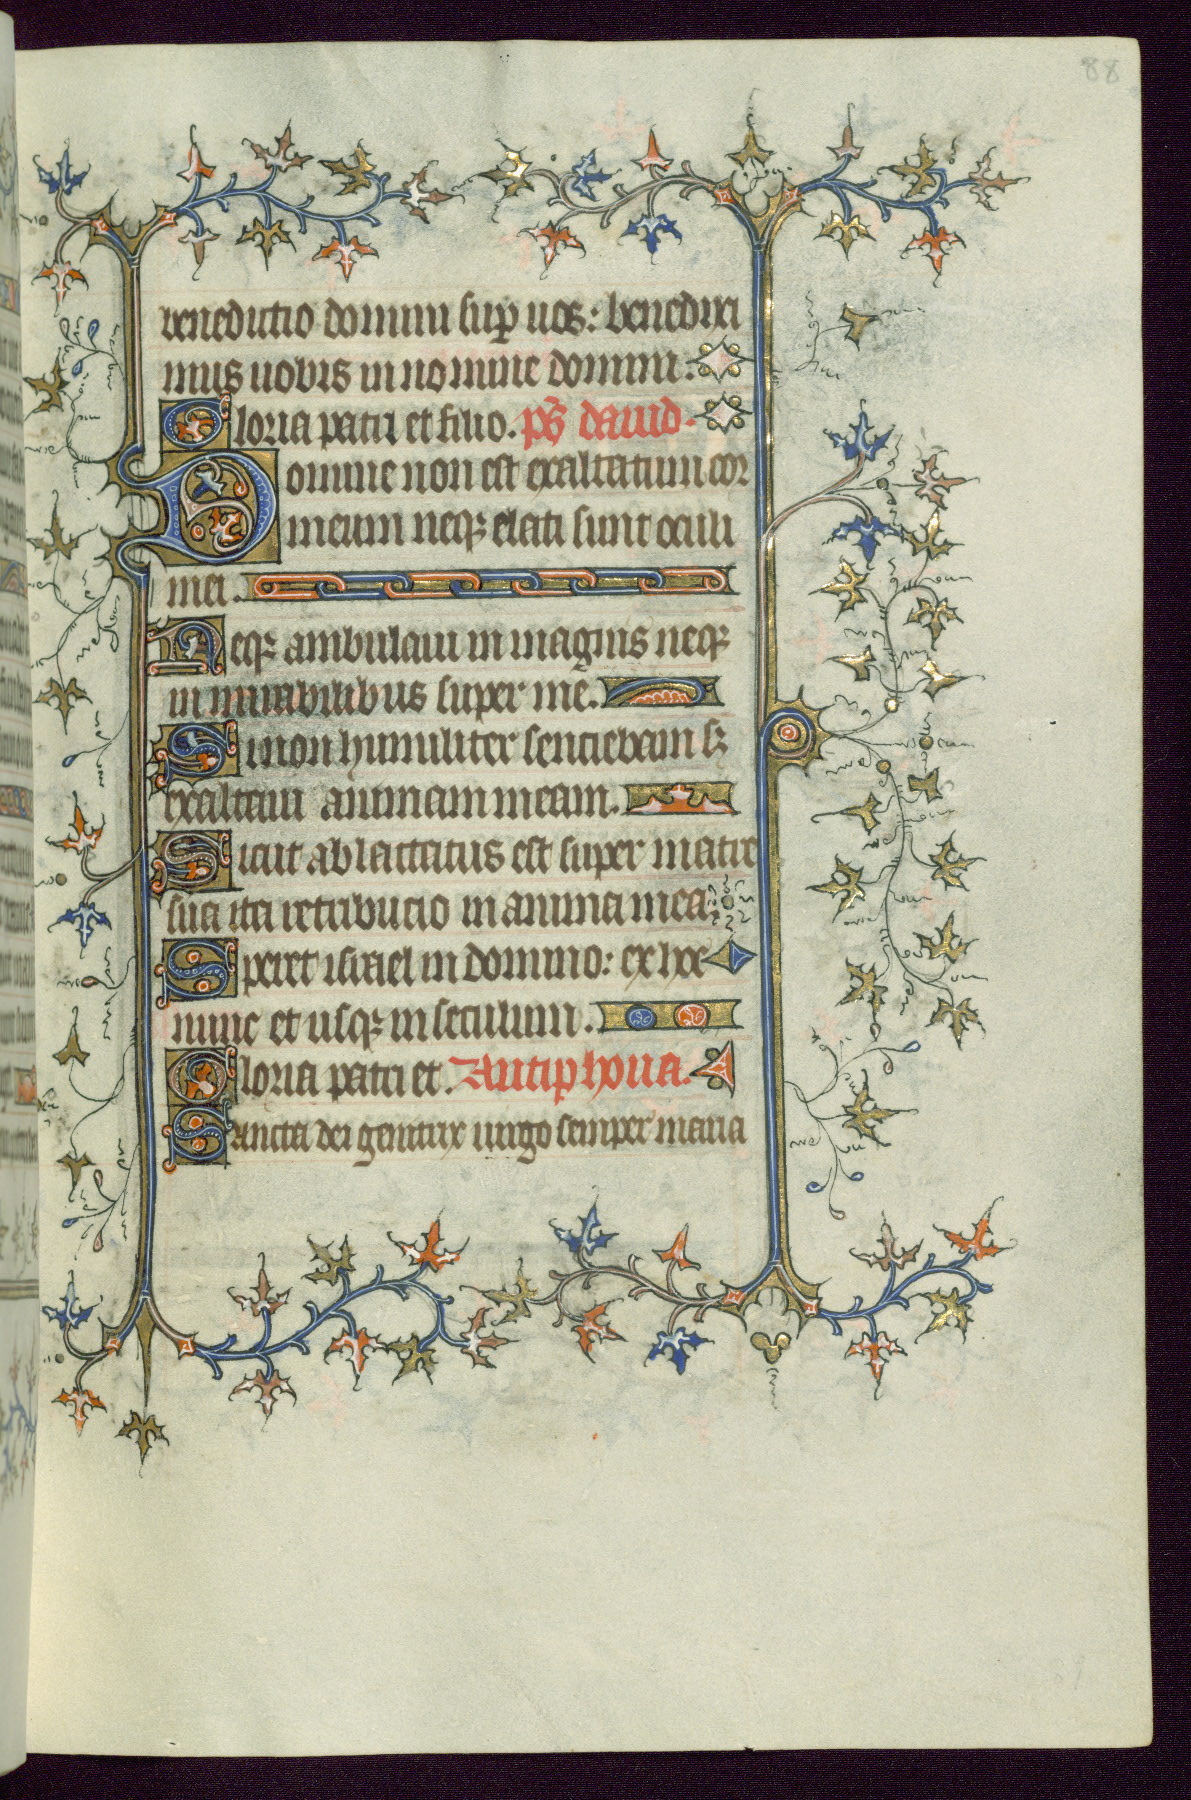 88
benedictio domini sup uos: benedixi
mus uobis in nomine domini.
Gloria patri et filio. ps dauid.
Domine non est exaltatum cor
meum neq; elati sunt oculi
mei.
Neq; ambulaui in magnis neq;
in mirabilibus super me.
Si non humiliter sentiebam s;
exaltaui animam meam.
Sicut ablactatus est super matre
sua ita retribucio in anima mea.
Speret israel in domino: ex hoc
nunc et usq; in seculum.
Gloria patri et. Antiphona.
Sancta dei genitrix uirgo semper maria